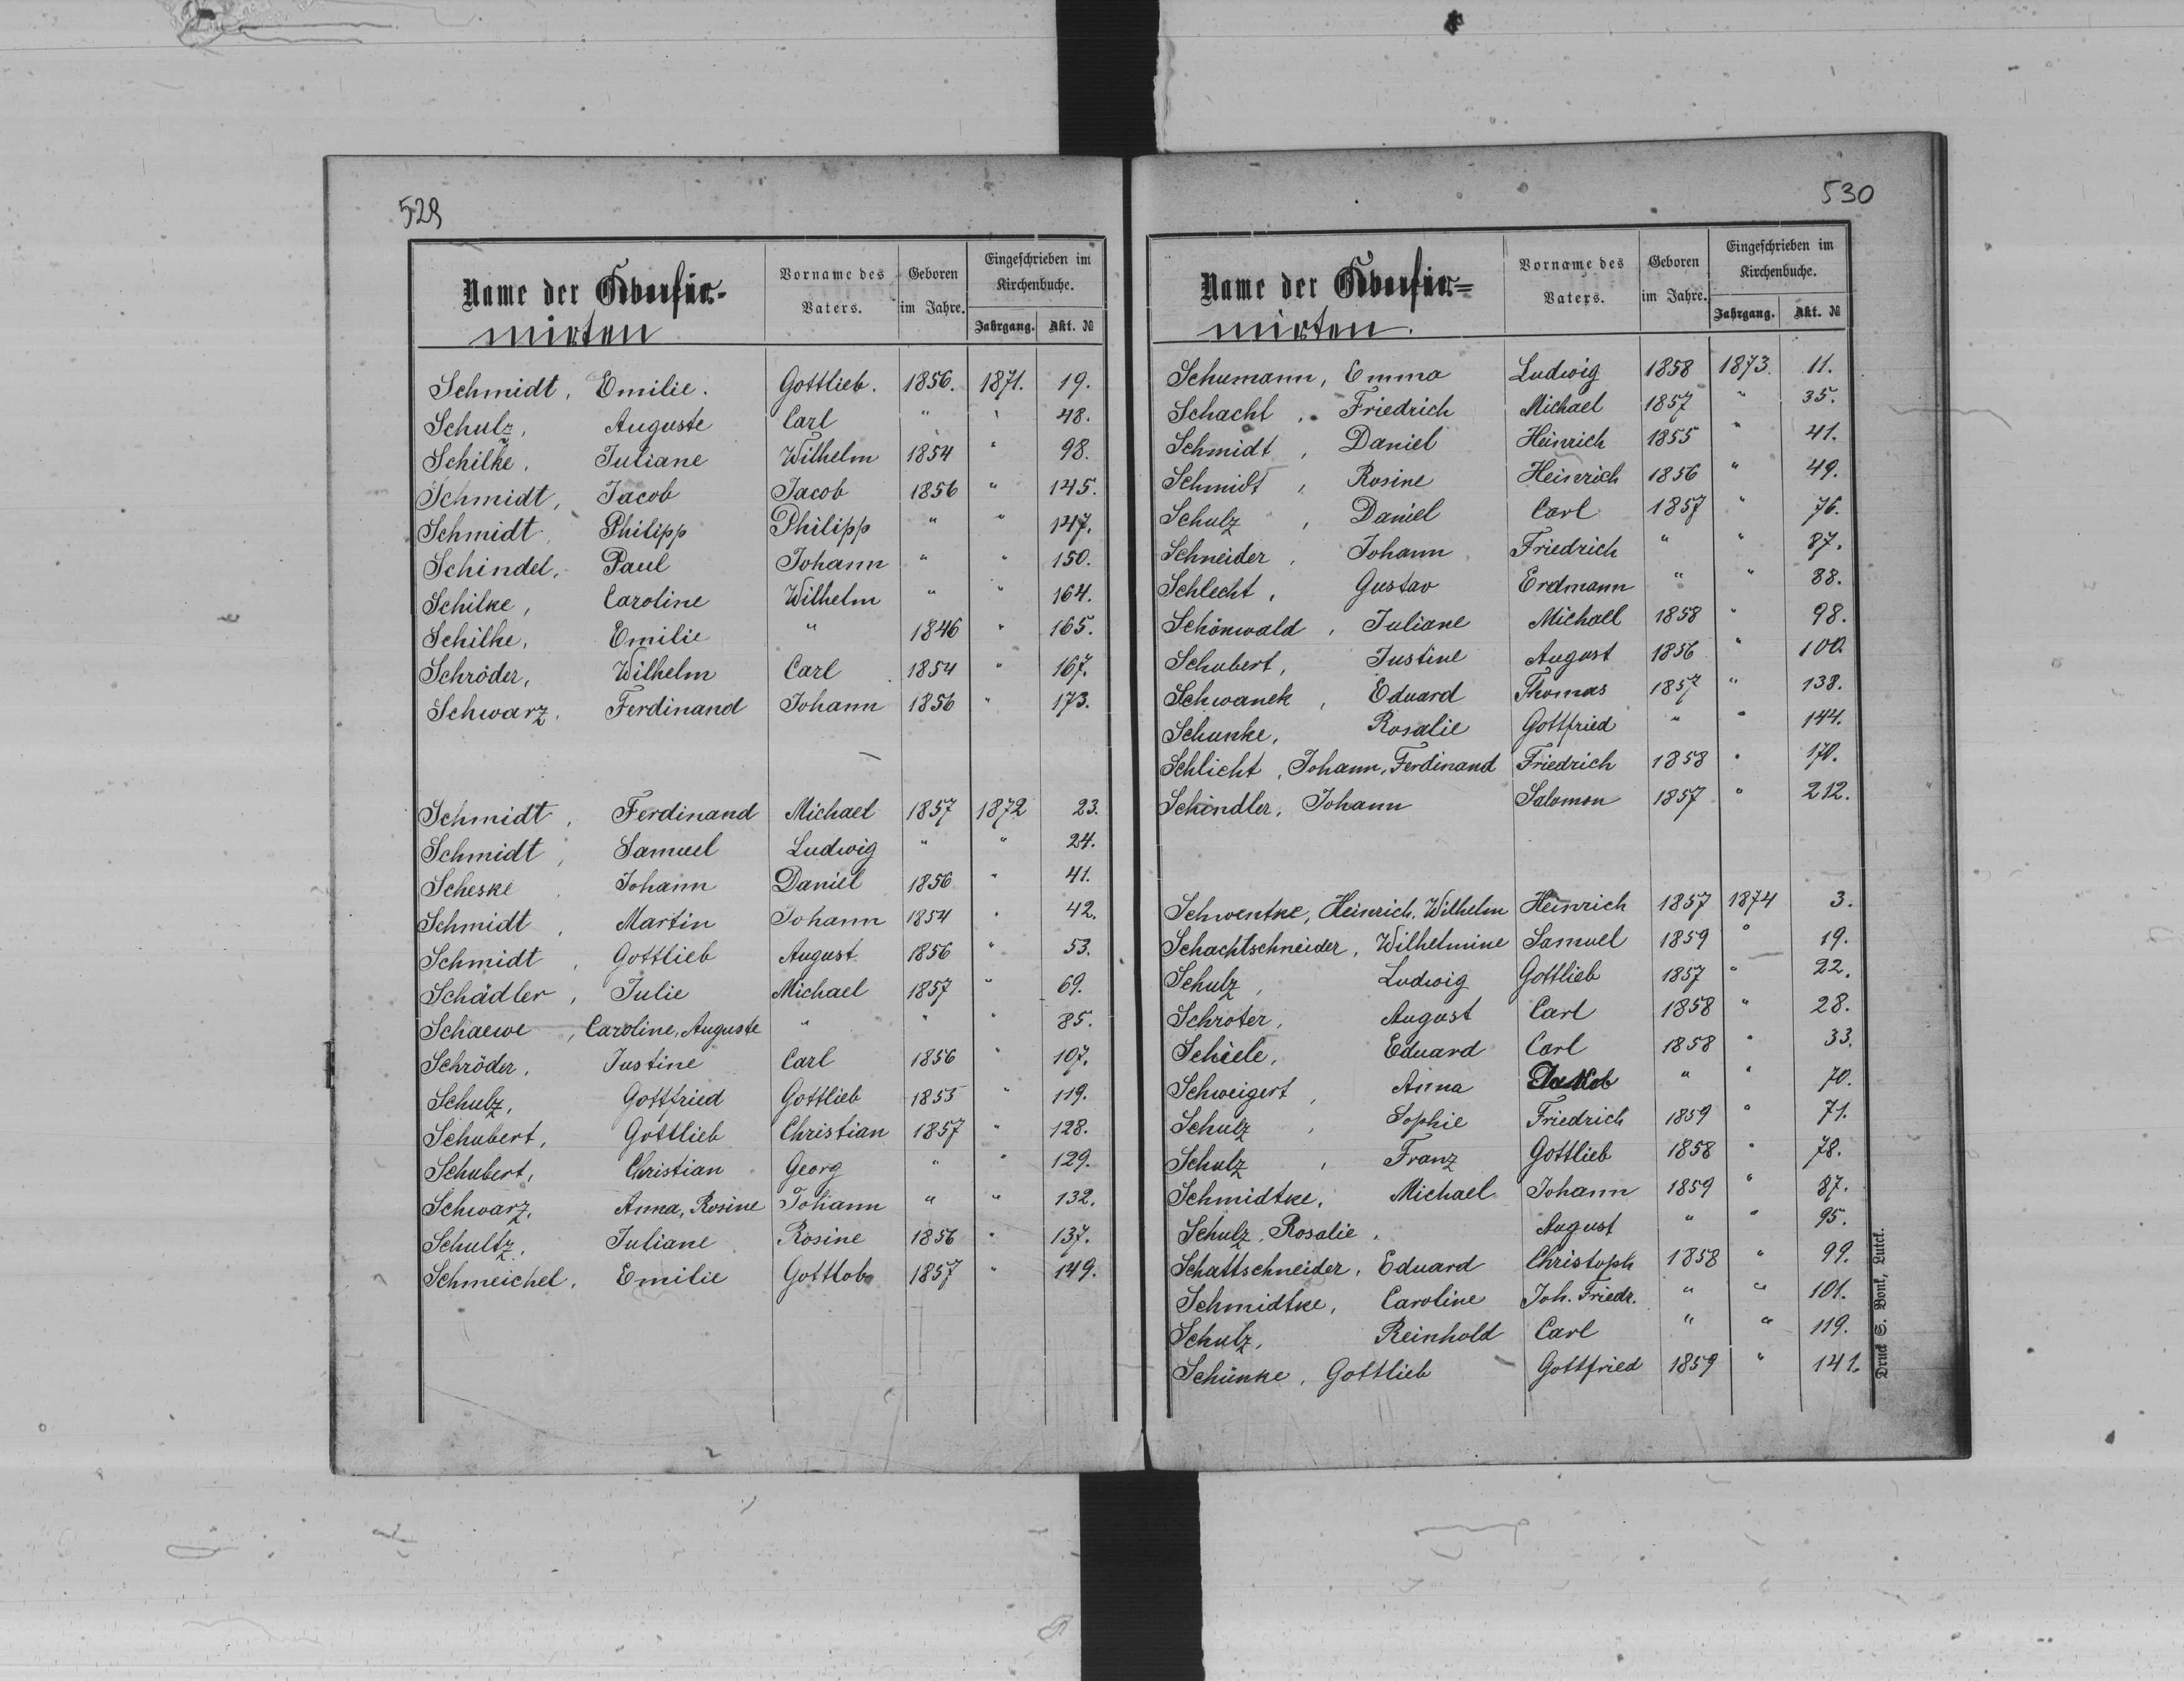 529
Name der Confir-
mirten
Vorname des Vaters.
Geboren im Jahre.
Eingeschrieben im Kirchenbuche.
Jahrgang. Akt. №
Schmidt, Emilie. Gottlieb. 1856. 1871. 19.
Schulz, Auguste Carl " " 48.
Schilke, Juliane Wilhelm 1854 " 98.
Schmidt, Jacob Jacob 1856 " 145.
Schmidt, Philipp Philipp " " 147.
Schindel, Paul Johann " " 150.
Schilke, Caroline Wilhelm " " 164.
Schilke, Emilie " 1846 " 165.
Schröder, Wilhelm Carl 1854 " 167.
Schwarz, Ferdinand Johann 1856 " 173.
Schmidt, Ferdinand Michael 1857 1872 23.
Schmidt, Samuel Ludwig " " 24.
Scheske Johann Daniel 1856 " 41.
Schmidt, Martin Johann 1854 " 42.
Schmidt, Gottlieb August 1856 " 53.
Schädler, Julie Michael 1857 " 69.
Schaewe, Caroline, Auguste " " " 85.
Schröder, Justine Carl 1856 " 107.
Schulz, Gottfried Gottlieb 1855 " 119.
Schubert, Gottlieb Christian 1857 " 128.
Schubert, Christian Georg " " 129.
Schwarz, Anna, Rosine Johann " " 132.
Schultz, Juliane Rosine 1856 " 137.
Schmeichel, Emilie Gottlob 1857 " 149.
530
Name der Confir=
mirten.
Vorname des Vaters.
Geboren im Jahre.
Eingeschrieben im Kirchenbuche.
Jahrgang. Akt. №
Schumann, Emma Ludwig 1858 1873. 11.
Schacht, Friedrich Michael 1857 " 35.
Schmidt, Daniel Heinrich 1855 " 41.
Schmidt, Rosine Heinrich 1856 " 49.
Schulz, Daniel Carl 1857 " 76.
Schneider, Johann Friedrich " " 87.
Schlecht, Gustav Erdmann " " 88.
Schönwald, Juliane Michael 1858 " 98.
Schubert, Justine August 1856 " 100.
Schwanek, Eduard Thomas 1857 " 138.
Schunke, Rosalie Gottfried " " 144.
Schlicht, Johann, Ferdinand Friedrich 1858 " 170.
Schindler, Johann Salomon 1857 " 212.
Schwentke, Heinrich, Wilhelm Heinrich 1857 1874 3.
Schachtschneider, Wilhelmine Samuel 1859 " 19.
Schulz, Ludwig Gottlieb 1857 " 22.
Schroter, August Carl 1858 " 28.
Schiele, Eduard Carl 1858 " 33.
Schweigert, Anna Jakob " " 70.
Schulz, Sophie Friedrich 1859 " 71.
Schulz, Franz Gottlieb 1858 " 78.
Schmidtke, Michael Johann 1859 " 87.
Schulz, Rosalie, August " " 95.
Schattschneider, Eduard Christoph 1858 " 99.
Schmidtke, Caroline Joh. Friedr. " " 101.
Schulz, Reinhold Carl " " 119.
Schünke, Gottlieb Gottfried 1859 " 141.
Druck S. Bonk, Lutck.